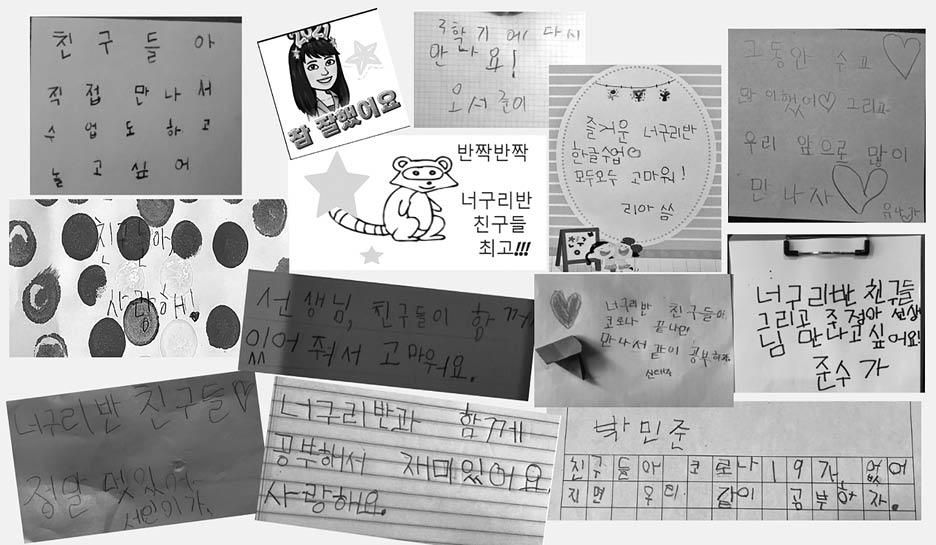 친구들아
직접 만나서
수업도하고
놀고싶어
2021
참 잘했어요
다시
만나요!
반짝반짝
너구리반
친구들
최고!!!
즐거운 너구리반
한글수업
모두모두 고마워!
리아 씀
그동안 수고
많이했어♡ 그리고
우리 앞으로 많이
만나자
친구들아,
사랑해!
선생님, 친구들이 함께
있어 줘서 고마워요.
너구리반 친구들아
코로나 끝나면
만나서 같이 공부하자
너구리반 친구들
그리고 준 정아 선생
님 만나고싶어요!
준수 가
너구리반 친구들♡
정말 멋있어.
서인이가.
너구리반과 함께
공부해서 재미있어요
사랑해요.
박민준
친구들아 코로나19가 없어
지면 우리 같이 공부하자.